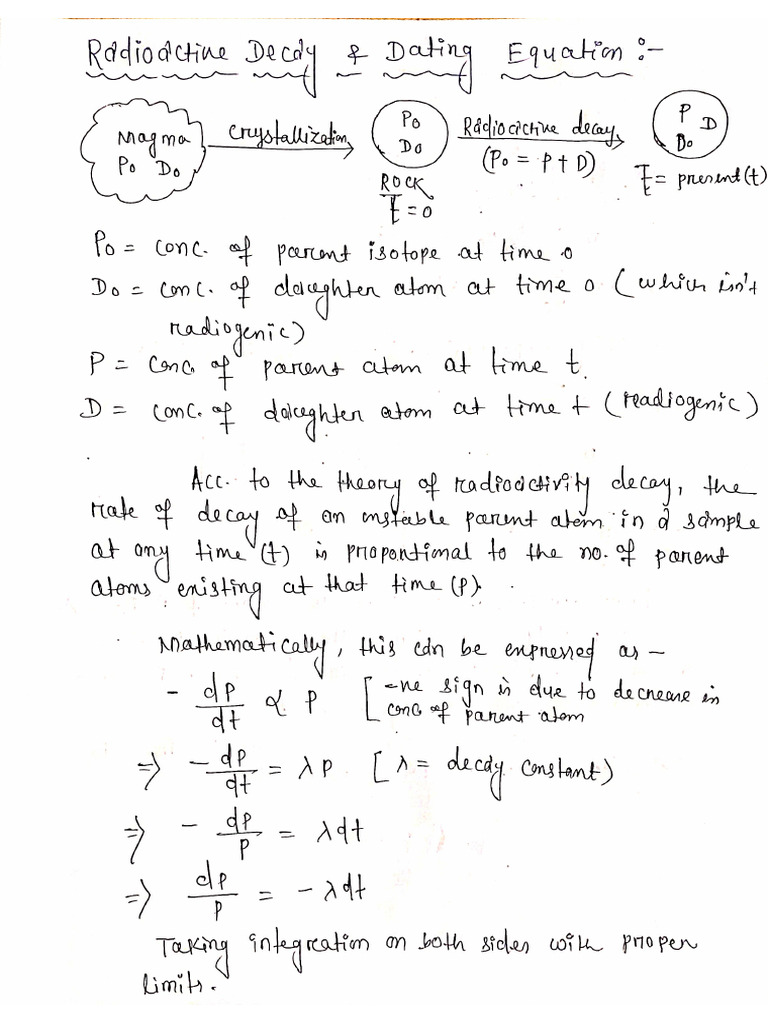 Radioactive Decay & Dating Equation :-
Magma
Po Do
Crystallization
Po
Do
ROCK
t = 0
Radioactive decay
(Po = P + D)
P
D
Do
t = present (t)
Po = conc. of parent isotope at time o
Do = conc. of daughter atom at time o (which isn't
radiogenic)
P = conc. of parent atom at time t.
D = conc. of daughter atom at time t (readiogenic)
Acc. to the theory of radioactivity decay, the
rate of decay of an unstable parent atom in a sample
at any time (t) is proportional to the no. of parent
atoms existing at that time (P).
Mathematically, this can be expressed as –
- dP/dt ∝ P [ -ve sign is due to decrease in
conc of parent atom
⇒ - dP/dt = λP [λ = decay constant)
⇒ - dP/P = λdt
⇒ dP/P = - λdt
Taking integration on both sides with proper
limits.